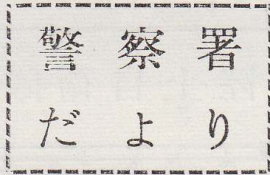 警察署
だより